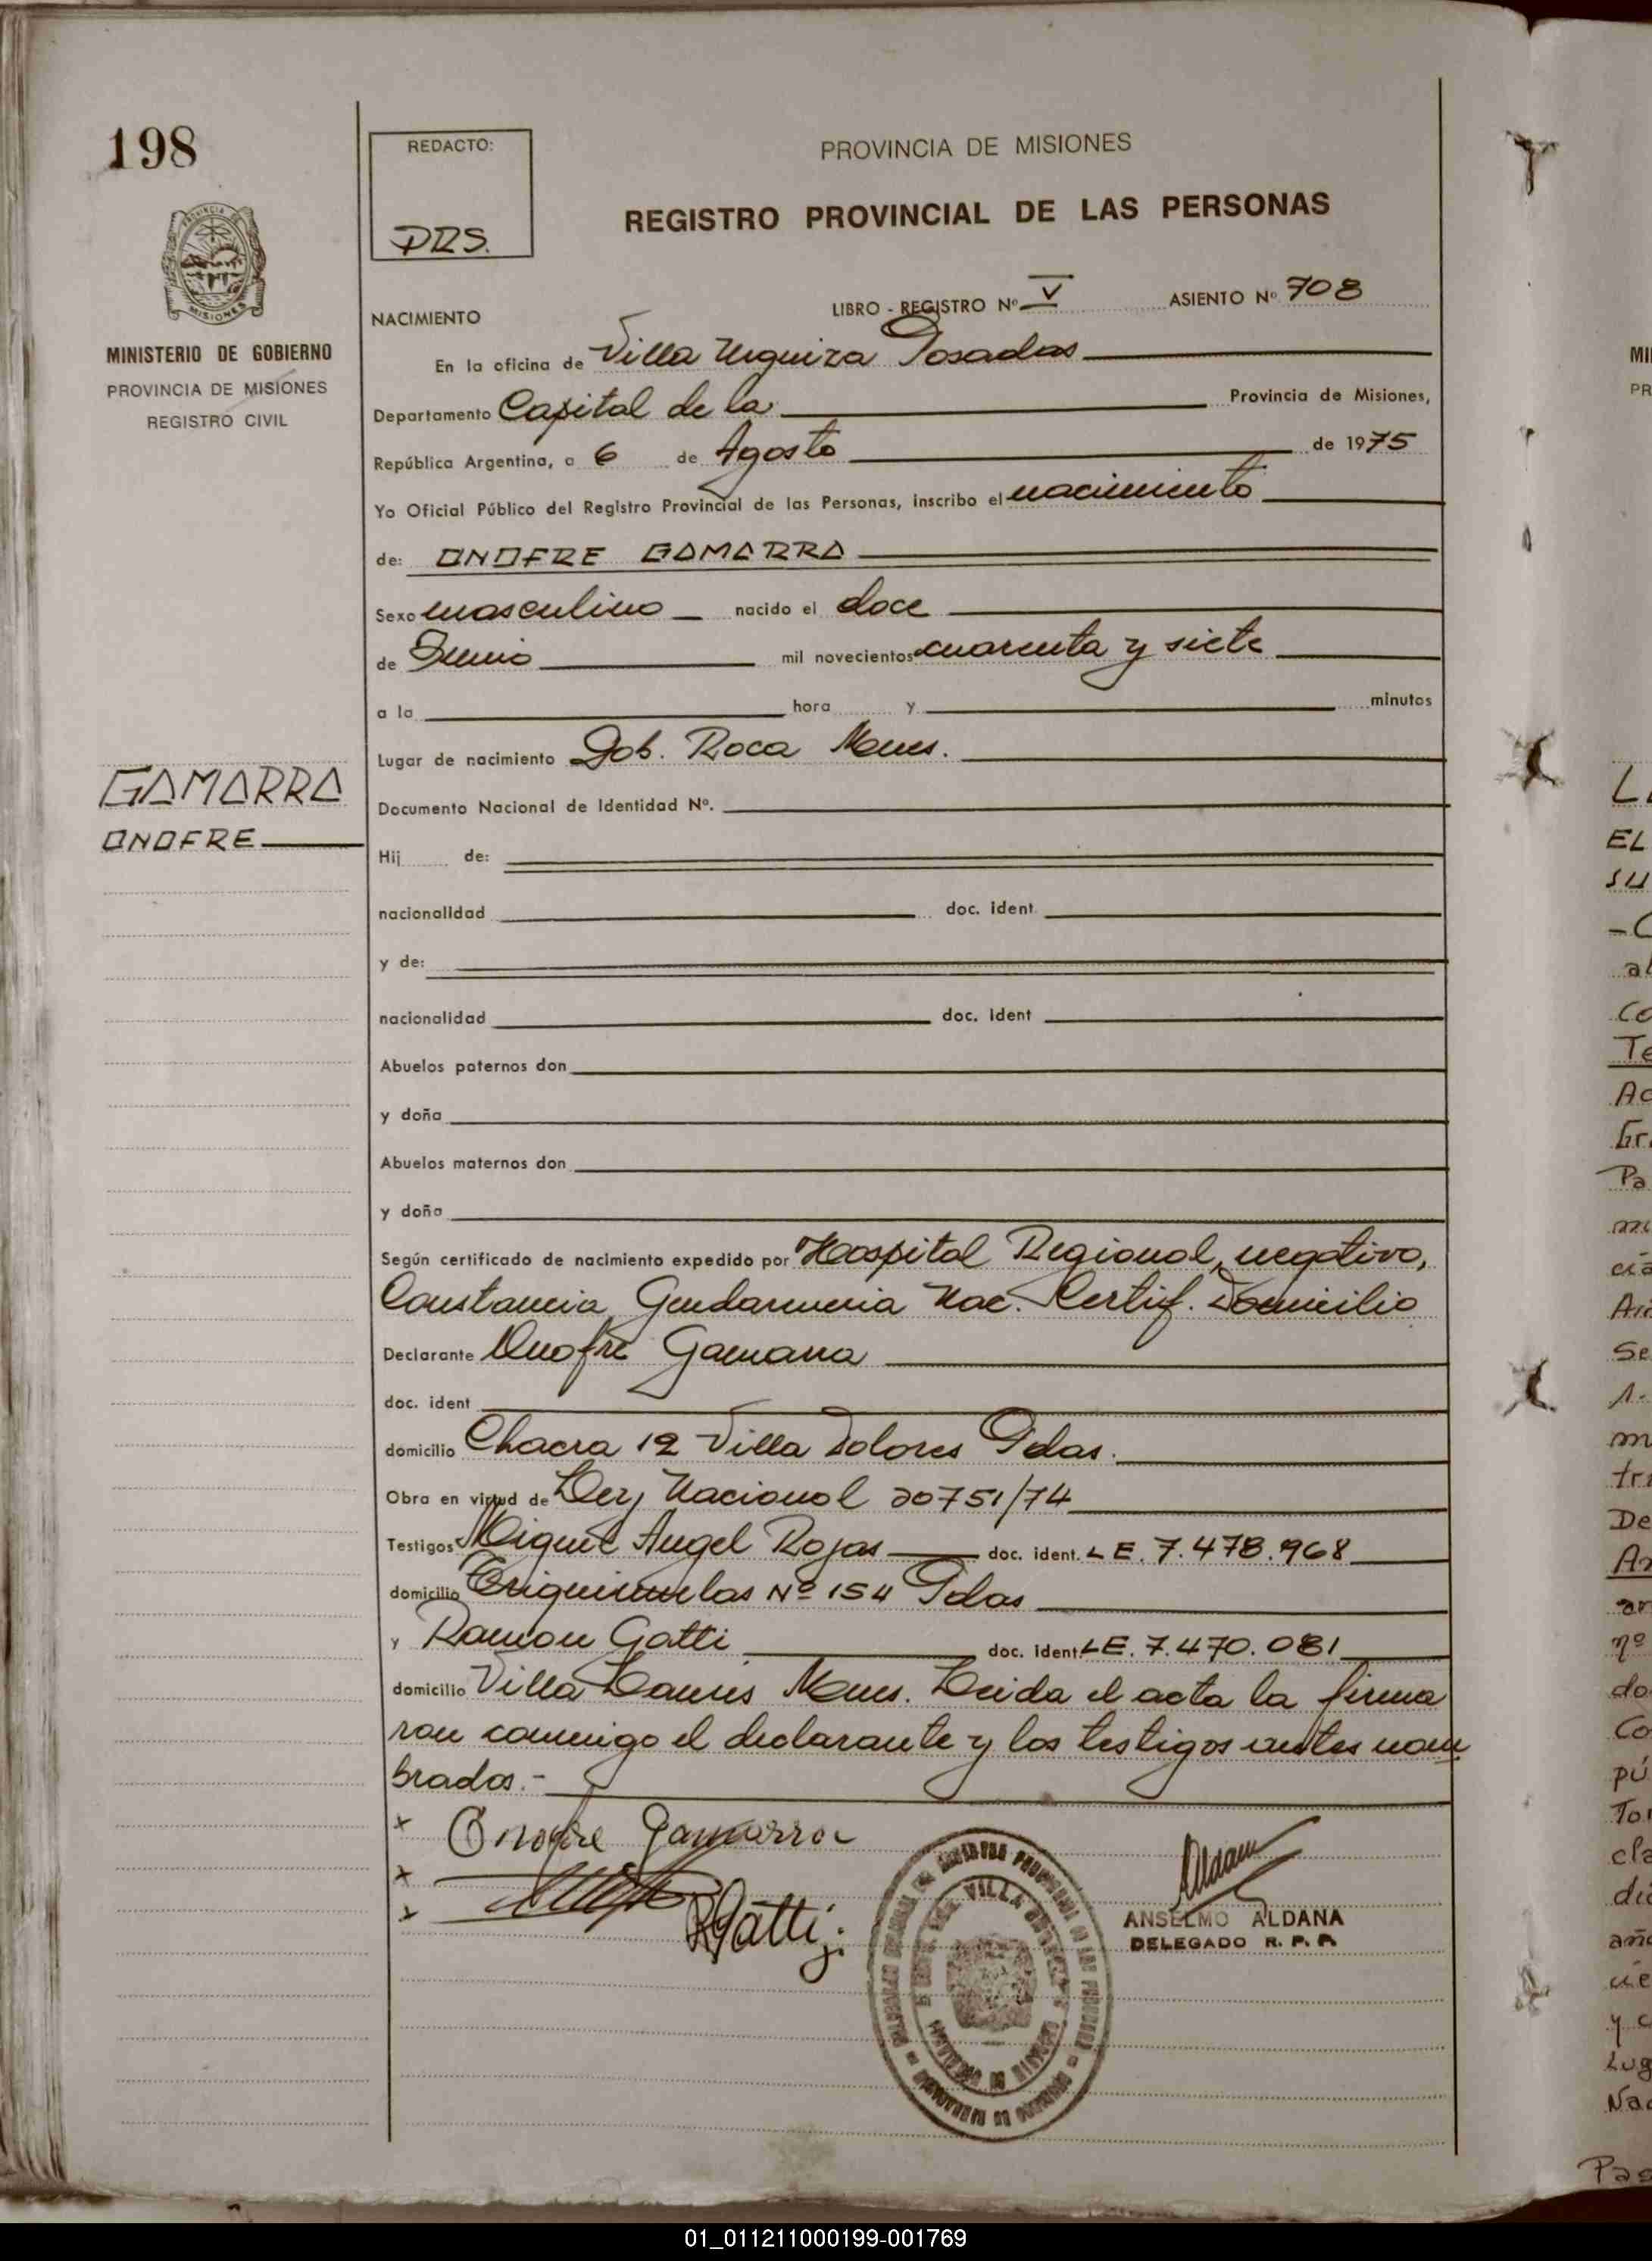 198
REDACTO:
DRS.
PROVINCIA DE MISIONES
REGISTRO PROVINCIAL DE LAS PERSONAS
MISIONES
MINISTERIO DE GOBIERNO
PROVINCIA DE MISIONES
REGISTRO CIVIL
LIBRO - REGISTRO Nº V ASIENTO Nº 708
NACIMIENTO
En la oficina de Villa Urquiza Posadas
Departamento Capital de la Provincia de Misiones,
República Argentina, a 6 de Agosto de 1975
Yo Oficial Público del Registro Provincial de las Personas, inscribo el nacimiento
de: ONOFRE GAMARRA
Sexo masculino nacido el doce
de Junio mil novecientos cuarenta y siete
a la hora y minutos
Lugar de nacimiento Gob. Roca Mnes.
GAMARRA
ONOFRE
Documento Nacional de Identidad Nº.
Hij de:
nacionalidad doc. ident.
y de:
nacionalidad doc. ident
Abuelos paternos don
y doña
Abuelos maternos don
y doña
Según certificado de nacimiento expedido por Hospital Regional, negativo,
Constancia Gendarmeria Nac. Certif. Domicilio
Declarante Onofre Gamarra
doc. ident
domicilio Chacra 12 Villa Dolores Pdas.
Obra en virtud de Ley Nacional 20751/74
Testigos Miguel Angel Rojas doc. ident. LE. 7.478.968
domicilio Nº 154 Pdas
y Ramon Gatti doc. ident. LE. 7.470.081
domicilio Villa Mnes. Leida el acta la firma
ron conmigo el declarante y los testigos antes nom
brados.-
x Onofre Gamarra
x
x RGatti
Aldana
ANSELMO ALDANA
DELEGADO R. P. P.
VILLA
01_011211000199-001769